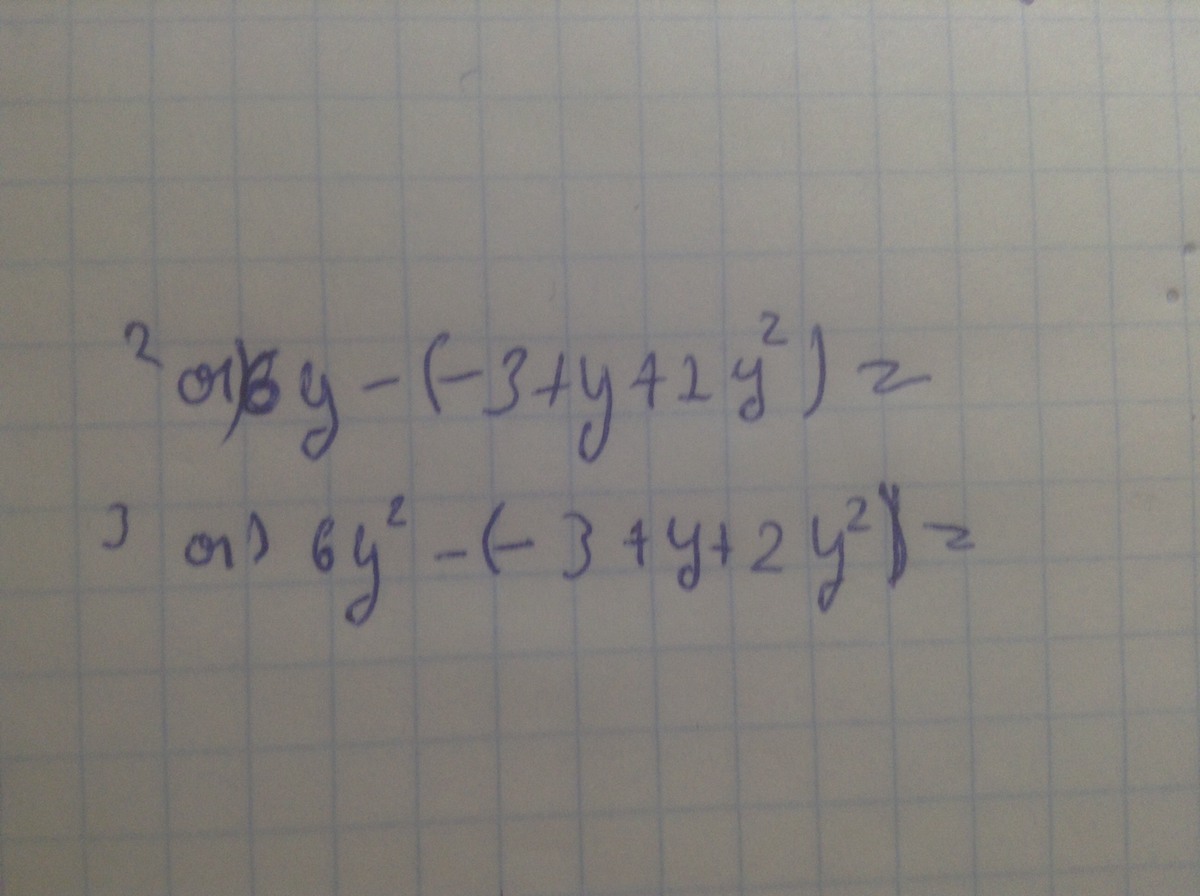 2 а) 6y - (-3 + y + 2y²) =
3 а) 6y² - (-3 + y + 2y²) =